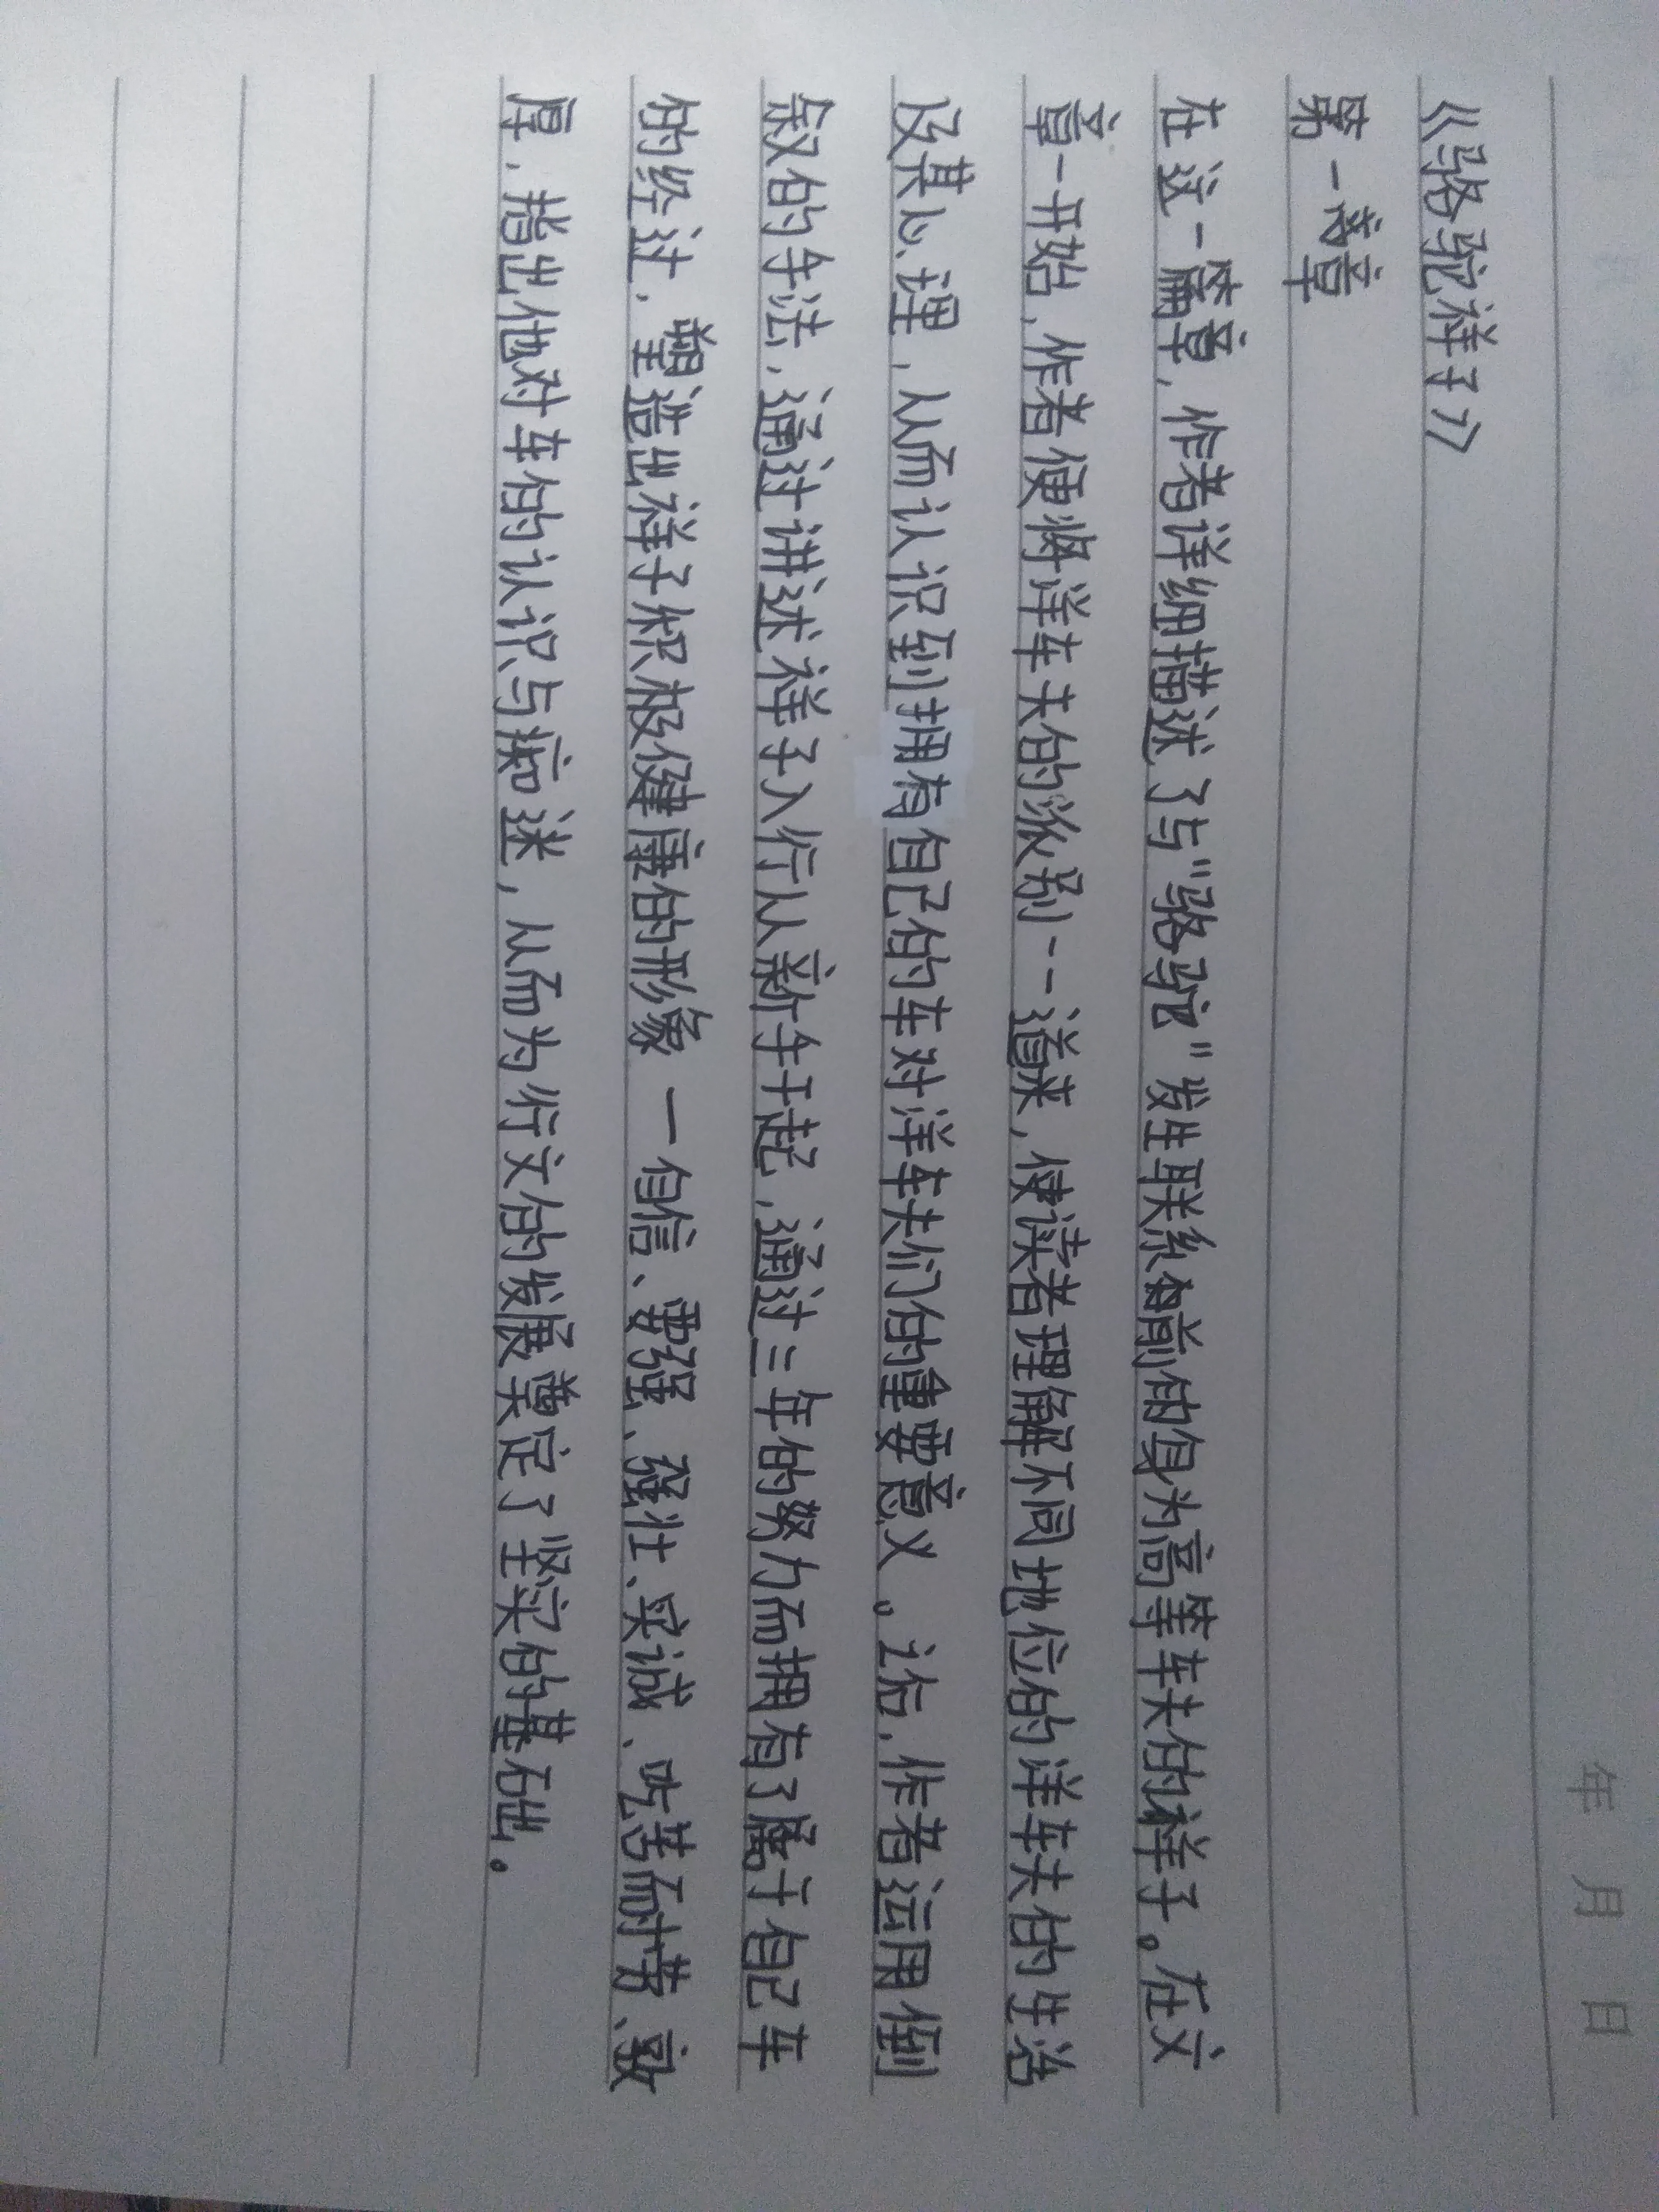 年 月 日
《骆驼祥子》
第一章
在这一篇章，作者详细描述了与"骆驼"发生联系前的身为高等车夫的祥子。在文
章一开始，作者便将洋车夫的派别一一道来，使读者理解不同地位的洋车夫的生活
及其心理，从而认识到拥有自己的车对洋车夫们的重要意义。之后，作者运用倒
叙的手法，通过讲述祥子入行从新手干起，通过三年的努力而拥有了属于自己车
的经过，塑造出祥子积极健康的形象 — 自信、要强、强壮、实诚、吃苦耐劳、敦
厚，指出他对车的认识与痴迷，从而为行文的发展奠定了坚实的基础。